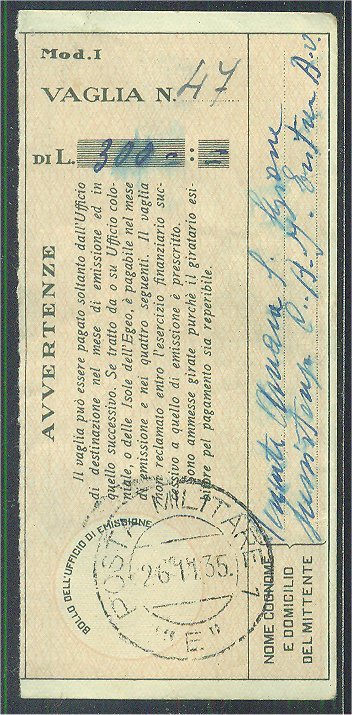 Mod. I
VAGLIA N. 47
DI L. 300 - : =
AVVERTENZE
Il vaglia può essere pagato soltanto dall'Ufficio
di destinazione nel mese di emissione ed in
quello successivo. Se tratto da o su Ufficio colo-
niale, o delle Isole dell'Egeo, è pagabile nel mese
di emissione e nei quattro seguenti. Il vaglia
non reclamato entro l'esercizio finanziario suc-
cessivo a quello di emissione è prescritto.
Sono ammesse girate purchè il giratario esi-
bitore pel pagamento sia reperibile.
BOLLO DELL'UFFICIO DI EMISSIONE
POSTA MILITARE 1
26.11.35.
"E"
NOME COGNOME
E DOMICILIO
DEL MITTENTE